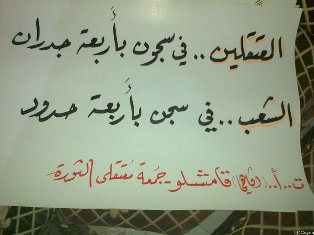 المعتقلين .. في سجون بأربعة جدران
الشعب .. في سجن بأربعة حدود
ت .. أ .. قامشلو - جمعة معتقلي الثورة